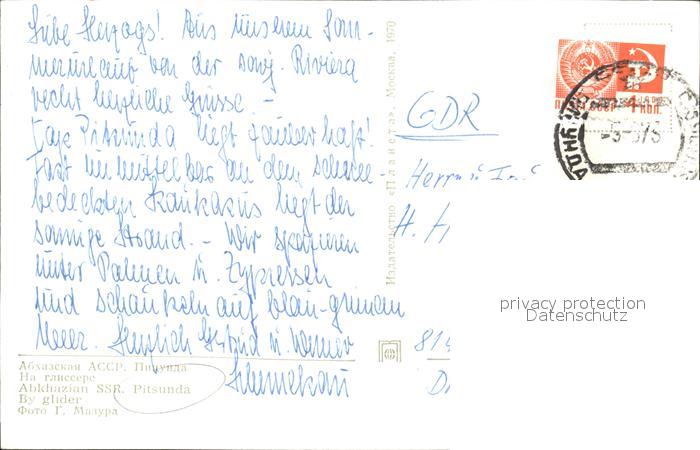 Liebe Herzogs! Aus unserem Som-
merurlaub von der sowj. Riviera
recht herzliche Grüsse. -
Das Pitsunda liegt zauberhaft!
Fast unmittelbar an dem schnee-
bedeckten Kaukasus liegt der
sonnige Strand. - Wir spazieren
unter Palmen u. Zypressen
und schaukeln auf blau-grünem
Meer. Herzlich u. Werner
Абхазская АССР. Пицунда
На глиссере
Abkhazian SSR. Pitsunda
By glider
Фото Г. Мазура
Издательство «Планета». Москва. 1970
GDR
Herrn u
H. H
81
D
4 коп.
privacy protection
Datenschutz